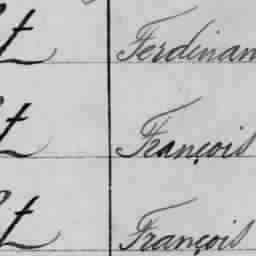 Ferdinan
François
François